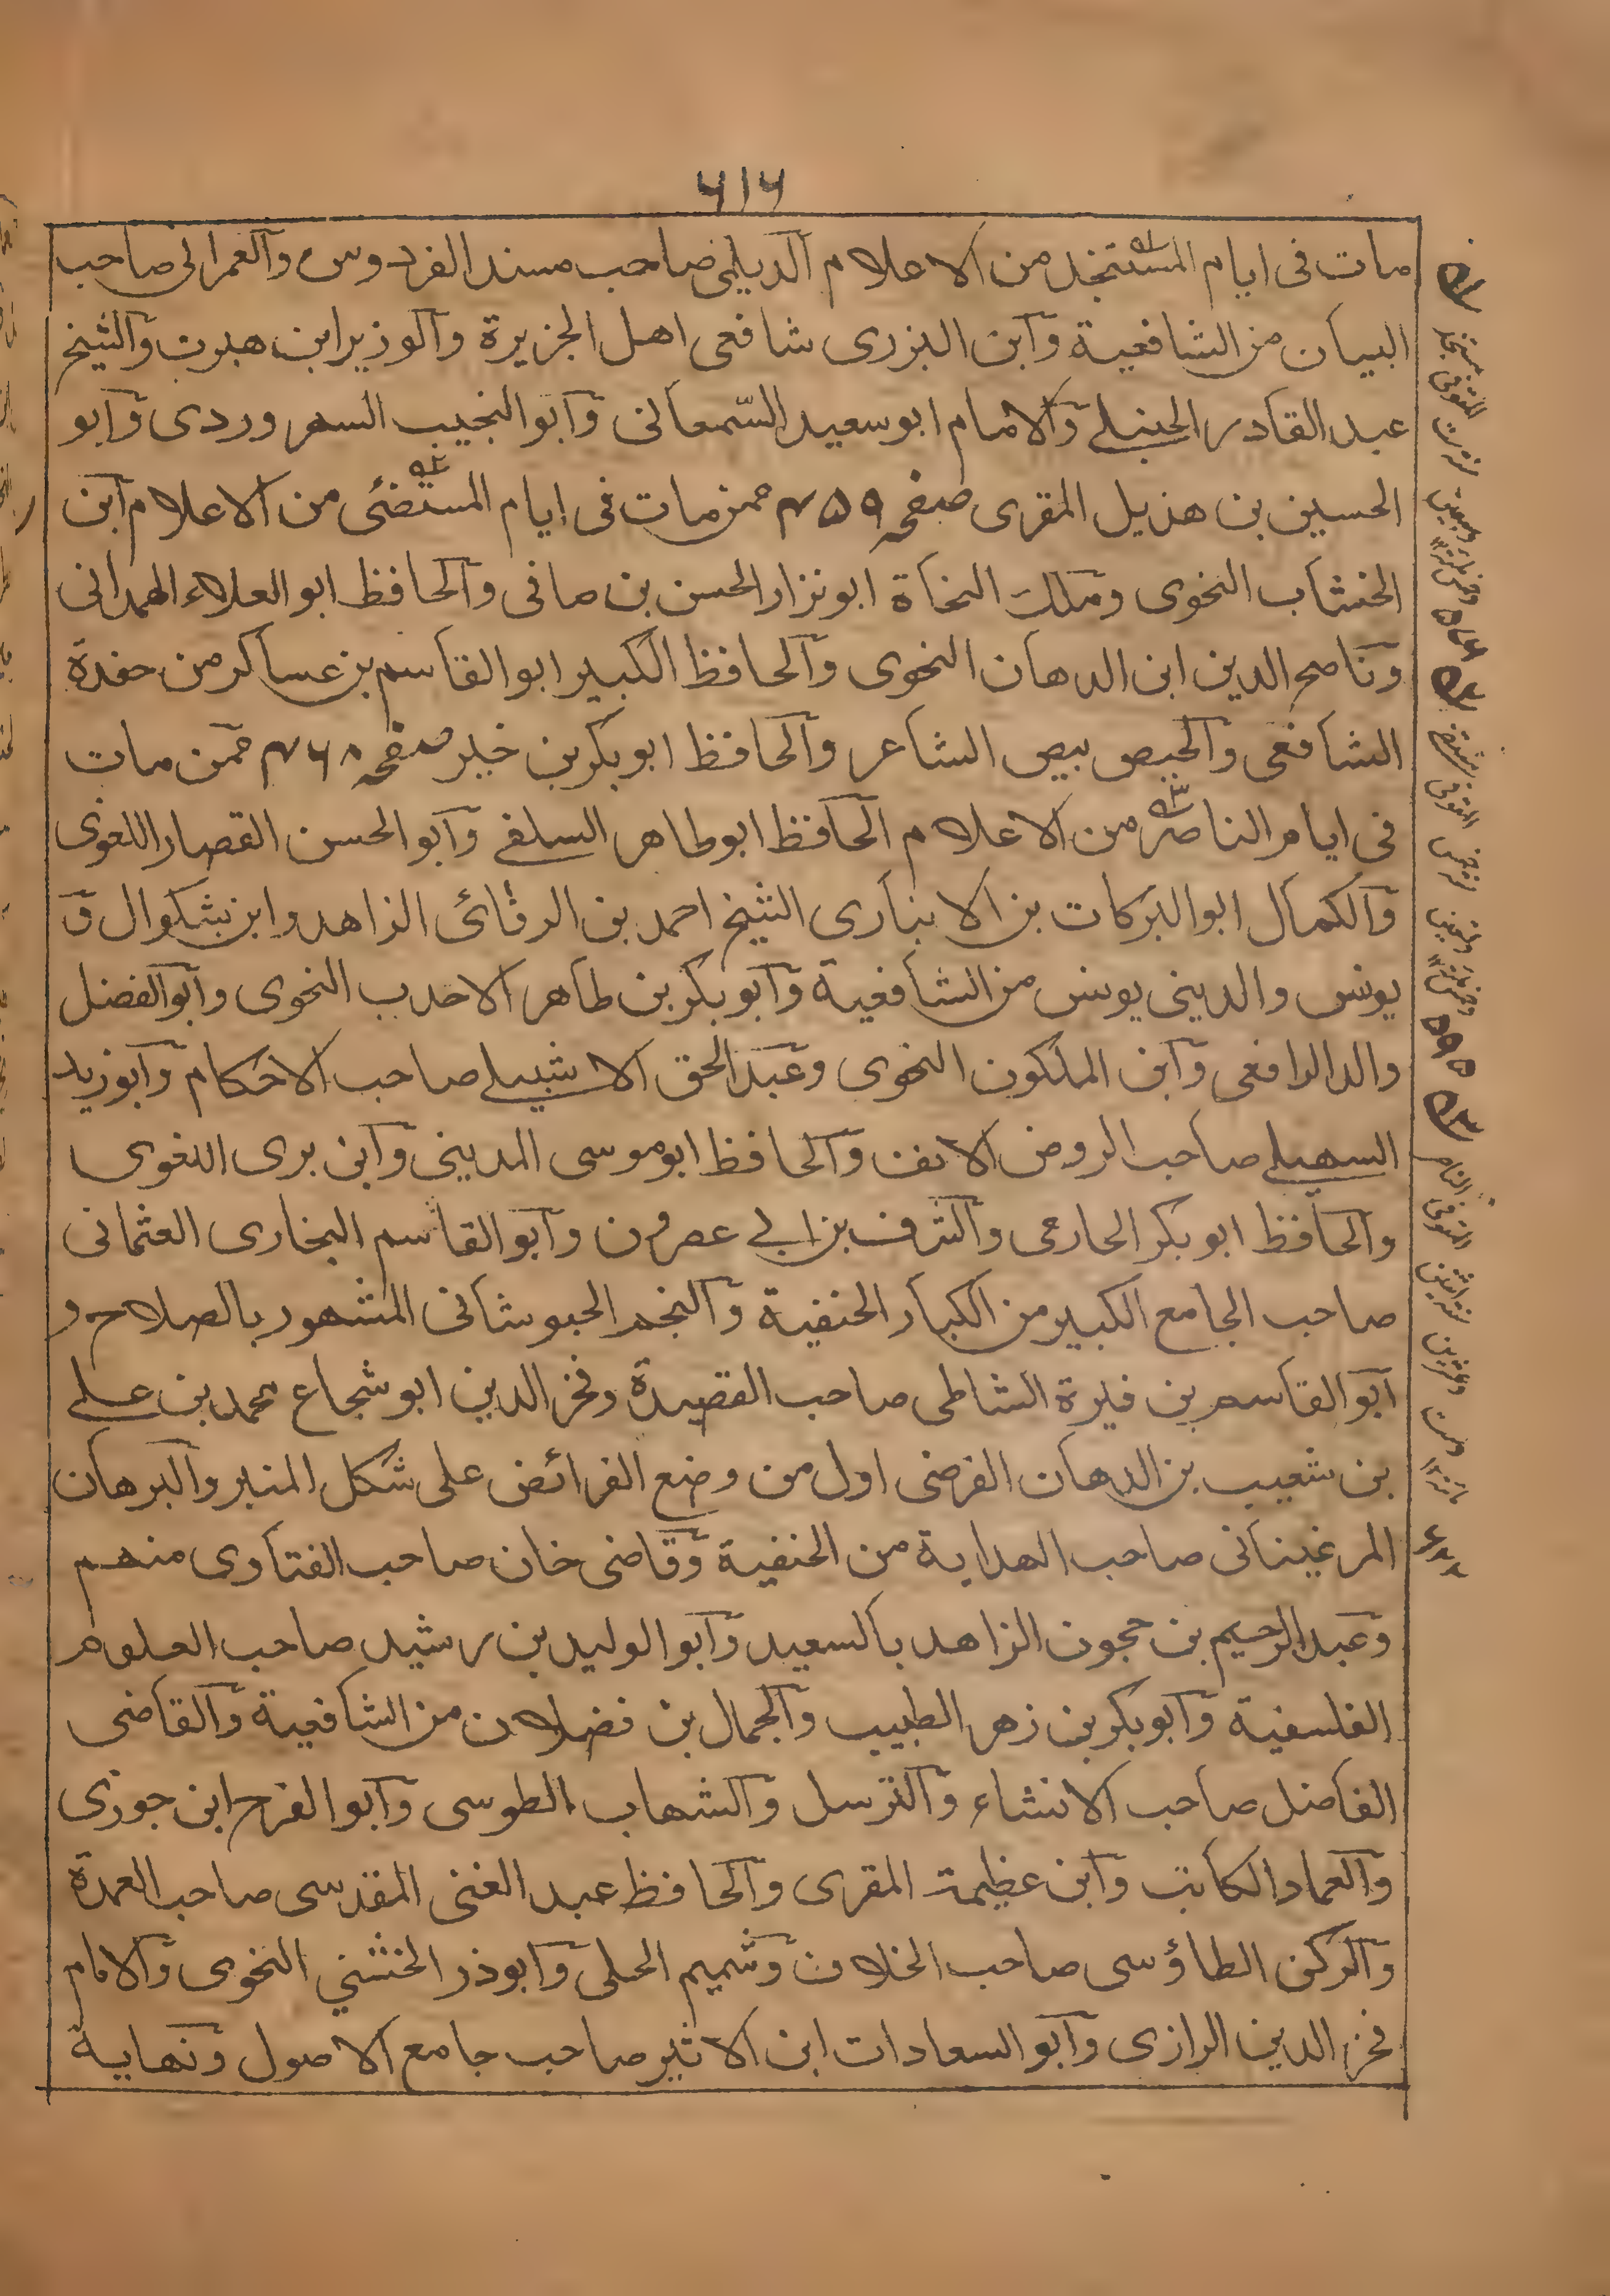 ۶۱۶
مات فی ایام المستنجد من الاعلام الدیلمی صاحب مسند الفردوس والعمرانی صاحب
البیان من الشافعیة وابن البزری شافعی اهل الجزیرة والوزیر ابن هبیرت والشیخ
عبد القادر الحنبلے والامام ابو سعید السّمعانی وابو النجیب السهروردی وابو
الحسین بن هذیل المقری صفحہ ۴۵۹ ممن مات فی ایام المستضئی من الاعلام ابن
الخشاب النحوی وملک النحاة ابو نزار الحسن بن صافی والحافظ ابو العلاء الهمدانی
وناصح الدین ابن الدهان النحوی والحافظ الکبیر ابو القاسم بن عساکر من حفدة
الشافعی والحیص بیص الشاعر والحافظ ابو بکر بن خیر صفحہ ۴۶۸ ممّن مات
فی ایام الناصر من الاعلام الحافظ ابو طاهر السلفے وابو الحسن القصار اللغوی
والکمال ابو البرکات بن الانباری الشیخ احمد بن الرفائی الزاهد وابن بشکوال ق
یونس والدینی یونس من الشافعیة وابو بکر بن طاهر الاحدب النحوی وابو الفضل
والد الرافعی وابن الملکون النحوی وعبد الحق الاشبیلے صاحب الاحکام وابو زید
السهیلے صاحب الروض الانف والحافظ ابو موسی المدینی وابن بری اللغوی
والحافظ ابو بکر الحازمی والشرف بن ابے عصرون وابو القاسم البخاری العثمانی
صاحب الجامع الکبیر من الکبار الحنفیة والنجم الحبوشانی المشهور بالصلاح و
ابو القاسم بن فیرة الشاطی صاحب القصیدة وفخر الدین ابو شجاع محمد بن علے
بن شعیب بن الدهان الفرضی اول من وضع الفرائض علی شکل المنبر والبرهان
المرغینانی صاحب الهدایة من الحنفیة وقاضی خان صاحب الفتاوی منهم
وعبد الرحیم بن حجون الزاهد بالسعید وابو الولید بن رشید صاحب العلوم
الفلسفیة وابو بکر بن زهر الطبیب والجمال بن فضلان من الشافعیة والقاضی
الفاضل صاحب الانشاء والترسل والشهاب الطوسی وابو الفرح ابن جوزی
والعماد الکاتب وابن عظیمة المقری والحافظ عبد الغنی المقدسی صاحب العمدة
والرکن الطاؤسی صاحب الخلاف وشمیم الحلی وابو ذر الخشنی النحوی والامام
فخر الدین الرازی وابو السعادات ابن الاثیر صاحب جامع الاصول ونهایة